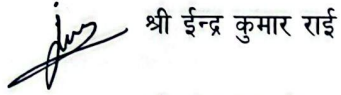 श्री ईन्द्र कुमार राई